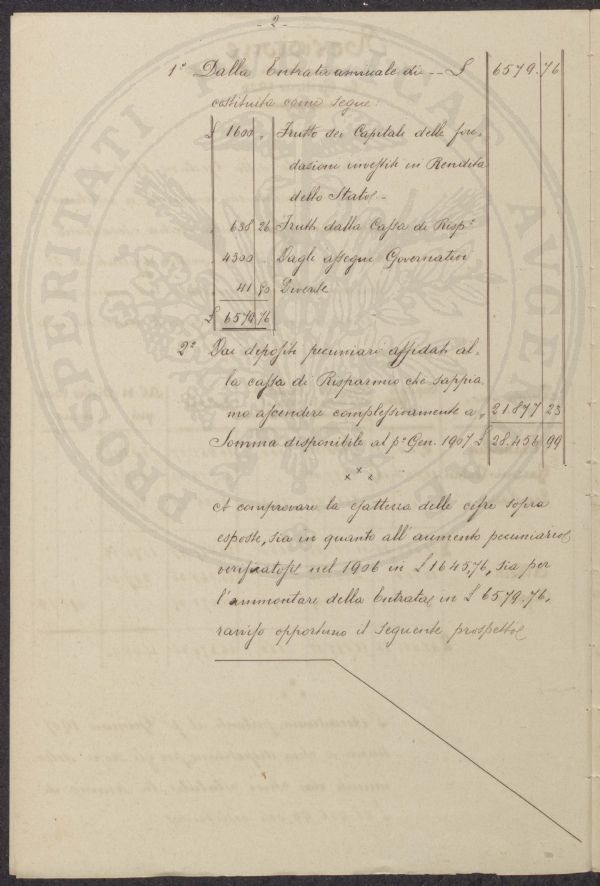 - 2 -
1º Dalla Entrata annuale di -- £ 6579.76
costituita come segue:
£ 1600 " Frutto dei Capitali delle fon-
dazioni investiti in Rendita
dello Stato -
638 26 Frutti dalla Cassa di Rispº
4300 - Dagli assegni Governativi
41 50 Diverse
£ 6579 76
2º Dai depositi pecuniari affidati al-
la cassa di Risparmio che sappia-
mo ascendere complessivamente a " 21.877 23
Somma disponibile al pº Gen. 1907 £ 28.456 99
x x x
A comprovare la esattezza delle cifre sopra
esposte, sia in quanto all'aumento pecuniario
verificatosi nel 1906 in £ 1645,76, sia per
l'ammontare della Entrata in £ 6579.76,
ravviso opportuno il seguente prospetto
PROSPERITATI PUBLICAE AUGENDAE